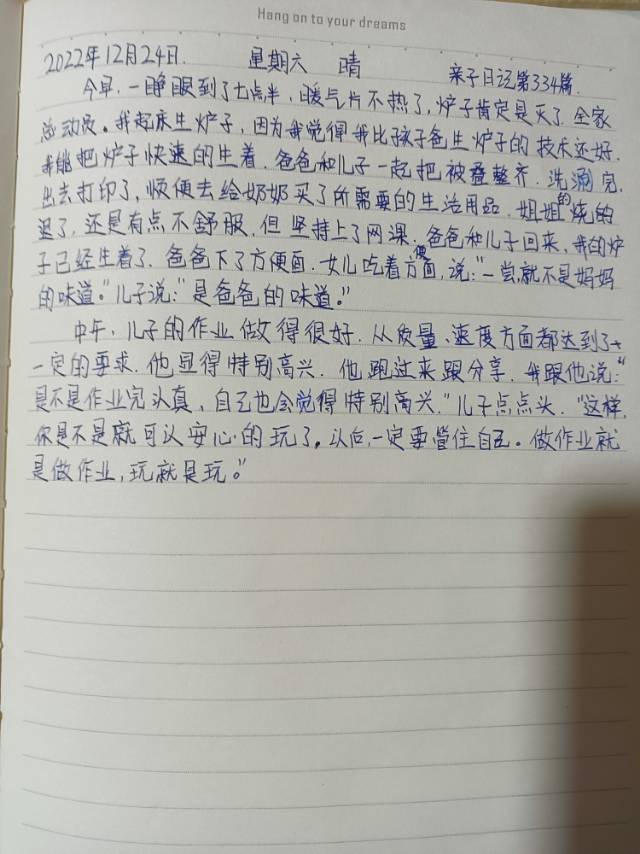 Hang on to your dreams
2022年12月24日. 星期六 晴 亲子日记第334篇.
今早,一睁眼到了七点半,暖气片不热了,炉子肯定是灭了.全家
总动员。我起床生炉子,因为我觉得我比孩子爸生炉子的技术还好.
我能把炉子快速的生着.爸爸和儿子一起把被叠整齐.洗漱完.
出去打印了,顺便去给奶奶买了所需要的生活用品.姐姐的烧的
退了,还是有点不舒服,但坚持上了网课.爸爸和儿子回来,我的炉
子已经生着了.爸爸下了方便面.女儿吃着方便面,说:"一尝就不是妈妈
的味道。"儿子说:"是爸爸的味道。"
中午,儿子的作业做得很好.从质量、速度方面都达到了
一定的要求.他显得特别高兴.他跑过来跟分享.我跟他说:"
是不是作业完认真,自己也会觉得特别高兴."儿子点点头."这样,
你是不是就可以安心的玩了。以后,一定要管住自己。做作业就
是做作业,玩就是玩。"